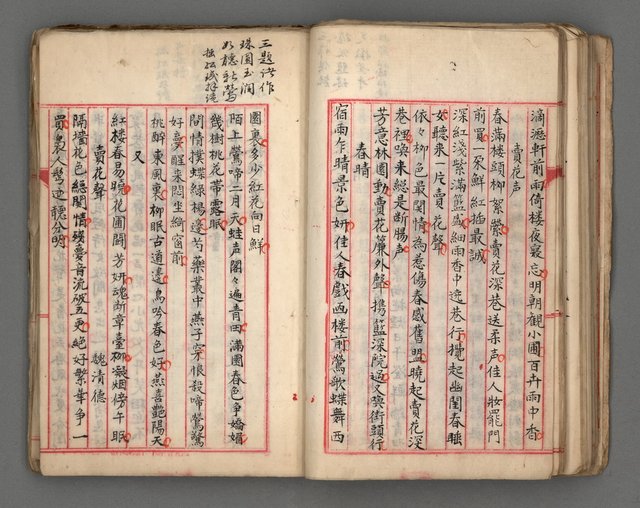 滴漉軒前雨倚樓夜最忘明朝觀小圃百卉雨中香
賣花声
春滿樓頭柳絮縈賣花深巷送柔声佳人妝罷門
前買一朵鮮紅插最誠
深紅淺紫滿籃盛細雨香中逸巷行攪起幽閨春睡
女聽來一片賣花聲
依々柳色最関情為惹傷春感舊盟曉起賣花深
巷裡喚來總是断腸声
芳意林園動賣花簾外聲携籃深院過又喚街頭行
春晴
宿雨乍晴景色妍佳人春戲西樓前鶯歌蝶舞西
園裏多少紅花向日鮮
陌上鶯啼二月天蛙声閣々遍青田滿園春色爭嬌媚
幾樹桃花帶露眠
閒情撲蝶綠楊邊芍藥叢中燕子穿恨殺啼鶯驚
好夢醒來悶坐綺窗前
桃醉東風裏柳眠古道邊鳥吟春色好燕喜艷陽天
又
紅樓春易曉花圃鬪芳妍魂断章臺柳凝烟傍午眠
賣花聲
魏清德
隔墻花色總関情殘憂音流破五更絕好繁華争一
買裏人鶯逆聽分明
三題諸作
珠圓玉潤
如聽新鶯